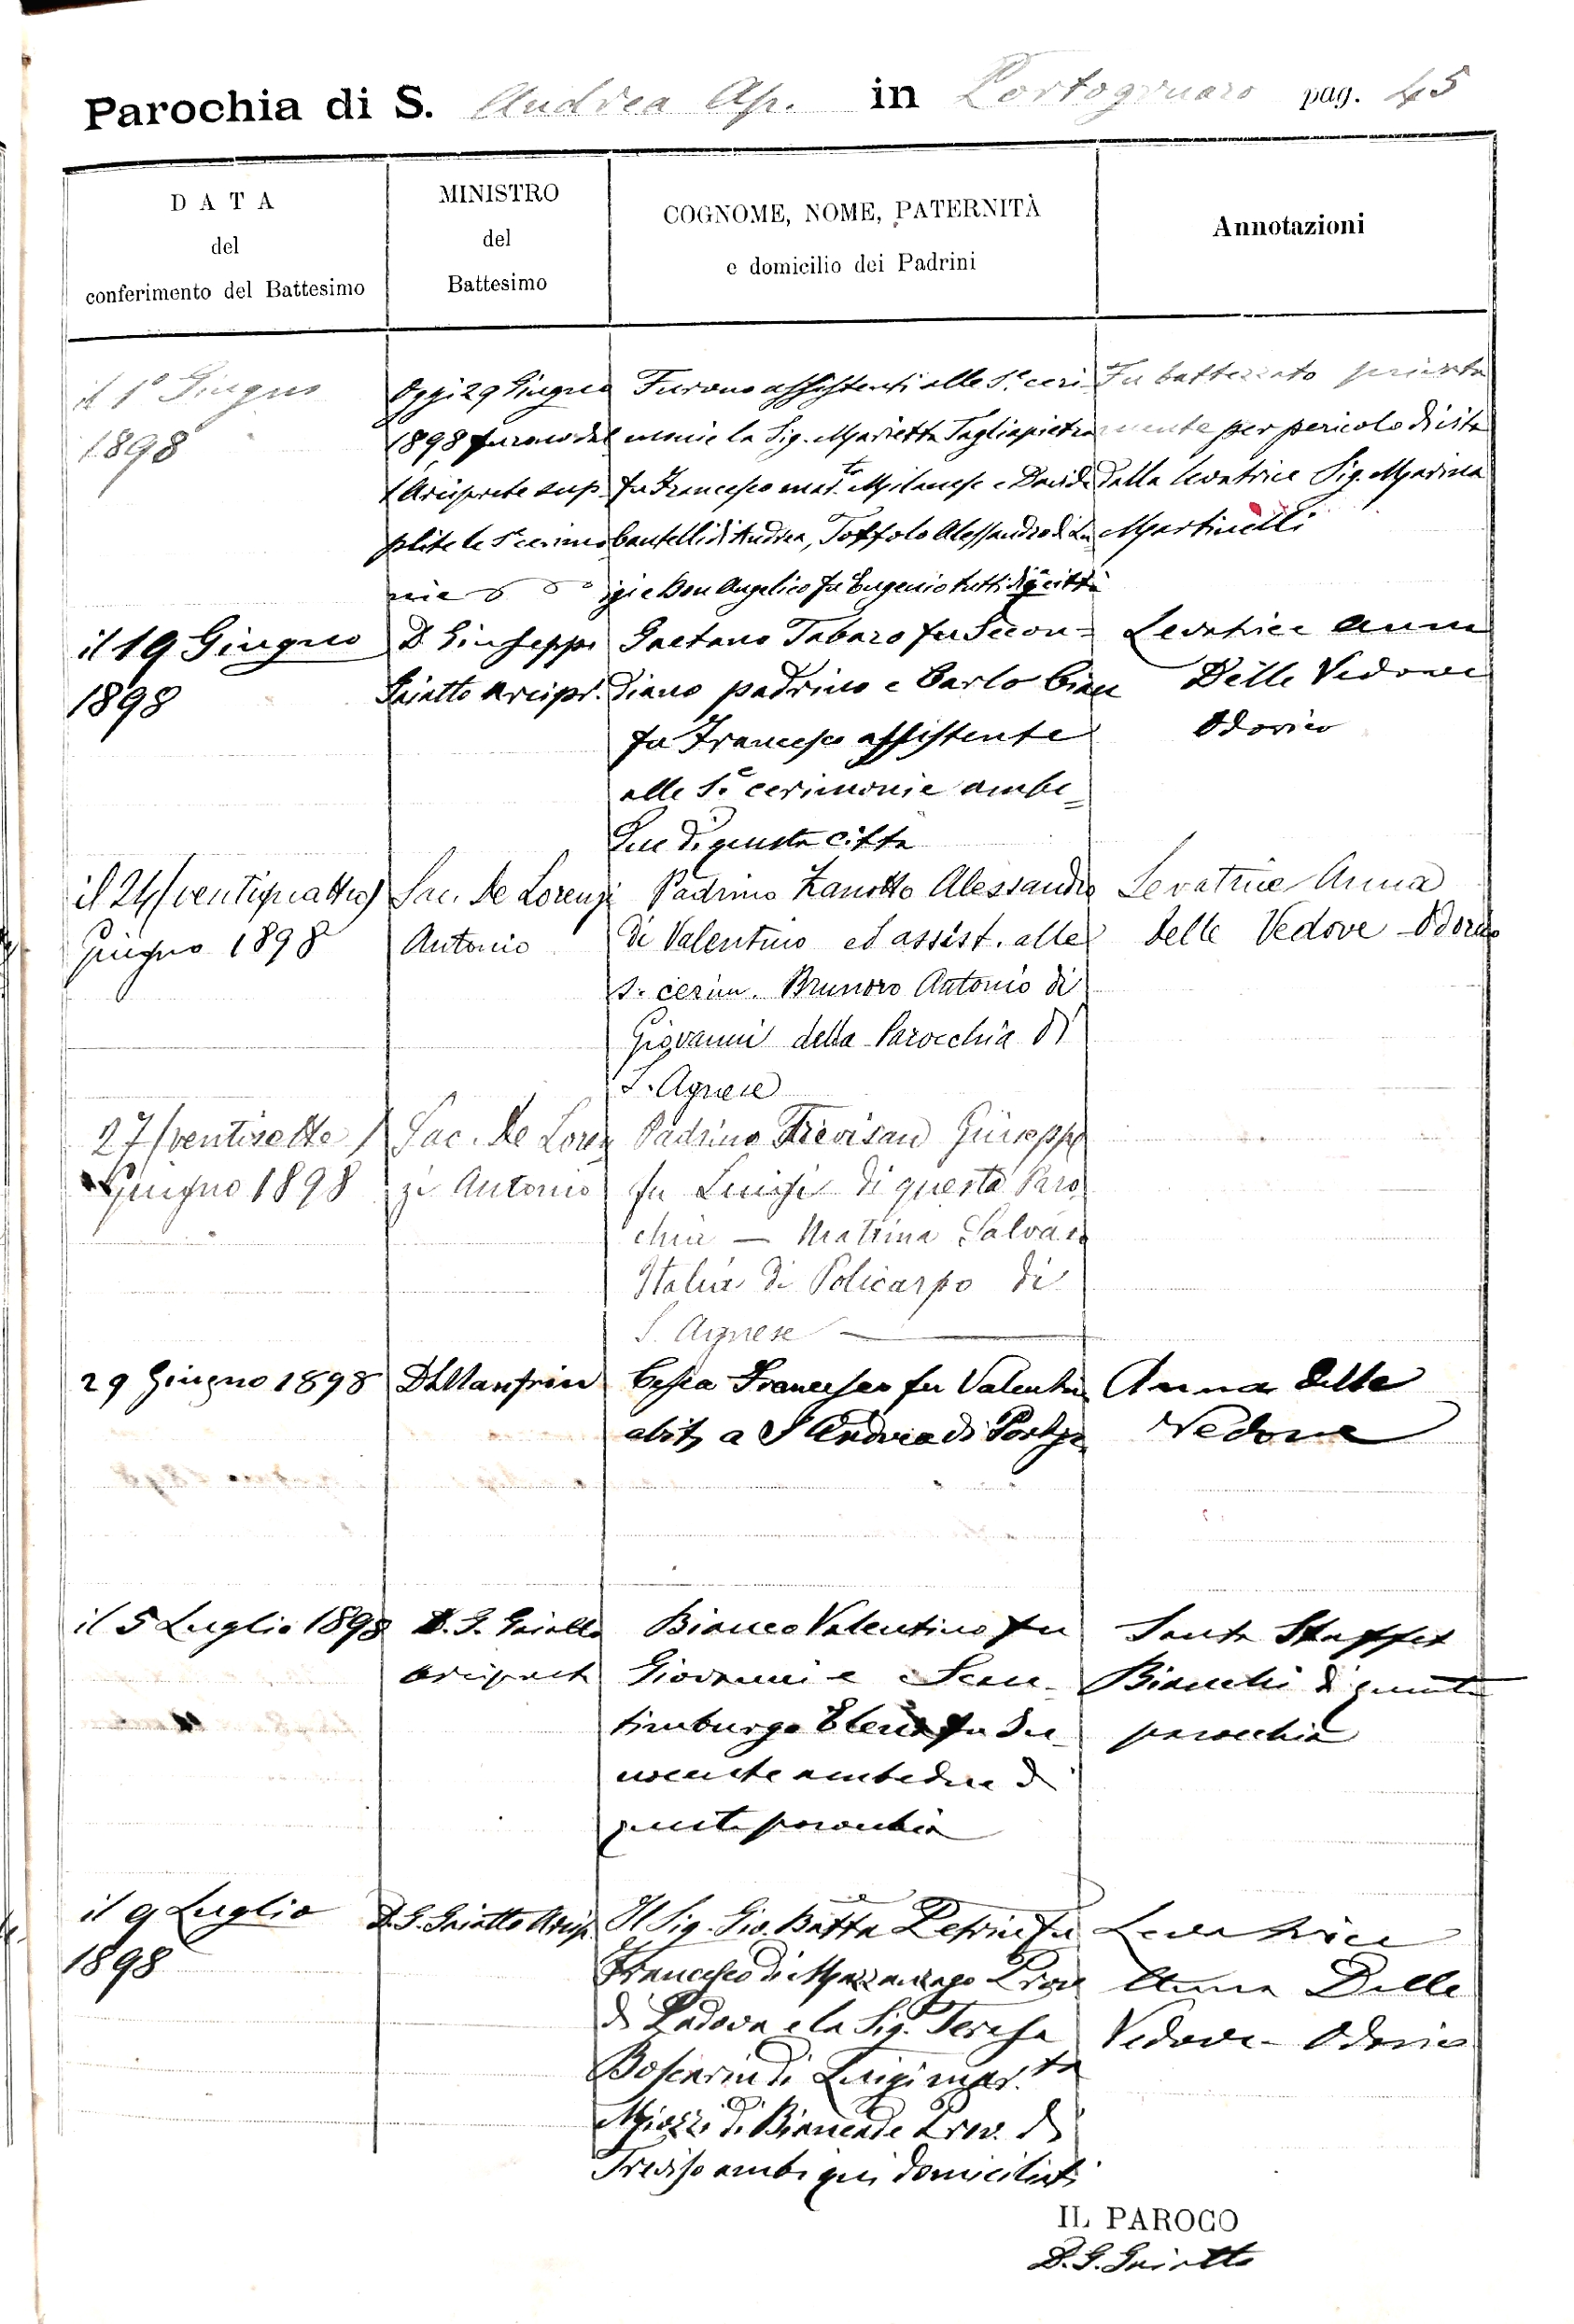 Parochia di S. Andrea Ap. in Portogruaro pag. 45
DATA
del
conferimento del Battesimo
MINISTRO
del
Battesimo
COGNOME, NOME, PATERNITÀ
e domicilio dei Padrini
Annotazioni
il 1º Giugno
1898
Oggi 29 Giugno
1898 furono dal
l'Arciprete sup
plite le S.e cerimo
nie
Furono assistenti alle S.e ceri
monie la Sig. Marietta Tagliapietra
fu Francesco mar.ta Milanese e Davide
Cantelli di Andrea, Toffolo Alessandro di Lu
igi e Bon Angelico fu Eugenio tutti di q. città
Fu battezzato privata
mente per pericolo di vita
dalla levatrice Sig. Marina
Martinelli
il 19 Giugno
1898
D. Giuseppe
Gaiatto Arcipr.
Gaetano Tabaro fu Secon=
diano padrino e Carlo
fu Francesco assistente
alle S.e cerimonie ambe=
due di questa città
Levatrice Anna
Delle Vedove
Odorico
il 24 (ventiquattro)
Giugno 1898
Sac. De Lorenzi
Antonio
Padrino Zanotto Alessandro
di Valentino ed assist. alle
s. cerim. Brunoro Antonio di
Giovanni della Parocchia di
S. Agnese
Levatrice Anna
delle Vedove Odorico
27 (ventisette)
Giugno 1898
Sac. De Loren
zi Antonio
Padrino Trevisan Giuseppe
fu Luigi di questa Paro
chia — Matrina Salvao
Italia di Policarpo di
S. Agnese
29 Giugno 1898
D L Manfrin
Cesca Francesco fu Valentin
abit a S Andrea di Portgr
Anna delle
Vedove
il 5 Luglio 1898
D. G. Gaiatto
Arciprete
Bianco Valentino fu
Giovanni e
Elena fu In
nocente ambedue di
questa parocchia
Santa
Bianchi di questa
parocchia
il 9 Luglio
1898
D. G. Gaiatto Arcip.
Il Sig. Gio. Batta Petrin fu
Francesco di Prov
di Padova e la Sig. Teresa
Boscarin di Luigi mar.ta
Miozzi di Biancade Prov. di
Treviso ambi qui domiciliati
Levatrice
Anna Delle
Vedove - Odorico
IL PAROCO
D. G. Gaiatto